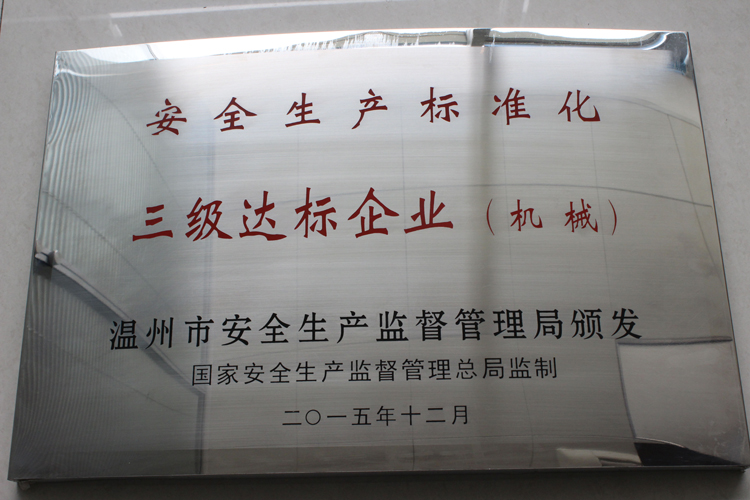 安全生产标准化
三级达标企业（机械）
温州市安全生产监督管理局颁发
国家安全生产监督管理总局监制
二〇一五年十二月